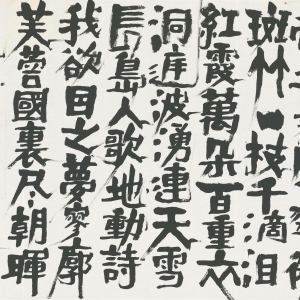 斑竹一枝千滴泪
紅霞萬朵百重衣
洞庭波湧連天雪
長島人歌地動詩
我欲因之夢寥廓
芙蓉國裏尽朝暉